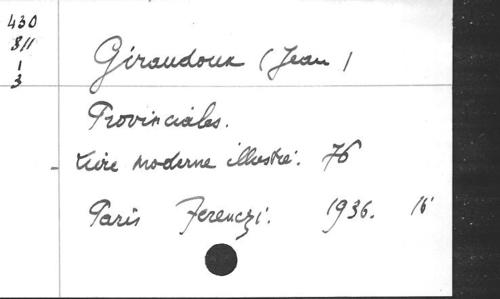 430
811
1
3
Giraudoux (Jean)
Provinciales.
Livre moderne illustré. 76
Paris Ferenczi. 1936. 16°